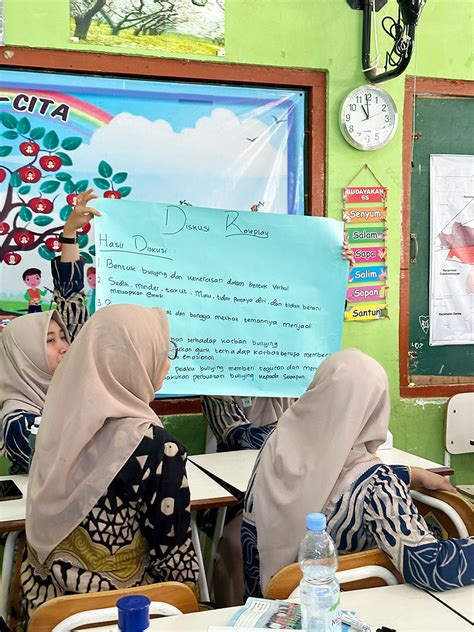 -CITA
Diskusi Roleplay
Hasil Diskusi :
1. Bentuk bullying dan kekerasan dalam bentuk Verbal
2. Sedih, minder, takut, malu, tidak percaya diri dan tidak berani
melaporkan
3.
dan bangga melihat temannya menjadi
an terhadap korban bullying
kan guru terhadap korban berupa
emosional
Pelaku bullying memberi teguran dan
kukan perbuatan bullying kepada
BUDAYAKAN
6S
Senyum
Salam
Sapa
Salim
Sopan
Santun